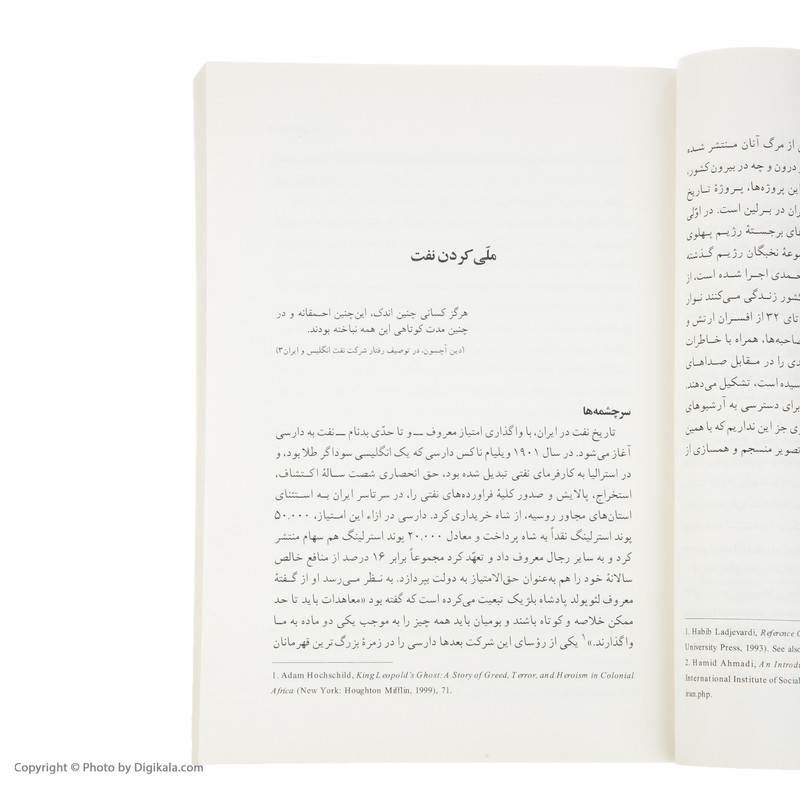 ملّی کردن نفت
هرگز کسانی چنین اندک، این‌چنین احمقانه و در
چنین مدت کوتاهی این همه نباخته بودند.
(دین آچسون، در توصیف رفتار شرکت نفت انگلیس و ایران۳)
سرچشمه‌ها
تاریخ نفت در ایران، با واگذاری امتیاز معروف ــ و تا حدّی بدنام ــ نفت به دارسی
آغاز می‌شود. در سال ۱۹۰۱ ویلیام ناکس دارسی که یک انگلیسی سوداگر طلا بود، و
در استرالیا به کارفرمای نفتی تبدیل شده بود، حق انحصاری شصت سالهٔ اکتشاف،
استخراج، پالایش و صدور کلیهٔ فراورده‌های نفتی را، در سرتاسر ایران به استثنای
استان‌های مجاور روسیه، از شاه خریداری کرد. دارسی در ازاء این امتیاز، ۵۰.۰۰۰
پوند استرلینگ نقداً به شاه پرداخت و معادل ۲۰.۰۰۰ پوند استرلینگ هم سهام منتشر
کرد و به سایر رجال معروف داد و تعهّد کرد مجموعاً برابر ۱۶ درصد از منافع خالص
سالانهٔ خود را هم به‌عنوان حق‌الامتیاز به دولت بپردازد. به نظر می‌رسد او از گفتهٔ
معروف لئوپولد پادشاه بلژیک تبعیت می‌کرده است که گفته بود «معاهدات باید تا حد
ممکن خلاصه و کوتاه باشند و بومیان باید همه چیز را به موجب یکی دو ماده به ما
واگذارند.»۱ یکی از رؤسای این شرکت بعدها دارسی را در زمرهٔ بزرگ‌ترین قهرمانان
1. Adam Hochschild, King Leopold's Ghost: A Story of Greed, Terror, and Heroism in Colonial
Africa (New York: Houghton Mifflin, 1999), 71.
از مرگ آنان منتشر شده
درون و چه در بیرون کشور،
این پروژه‌ها، پروژهٔ تاریخ
ران در برلین است. در اوّلی
های برجستهٔ رژیم پهلوی
وعهٔ نخبگان رژیم گذشته
حمدی اجرا شده است، از
کشور زندگی می‌کنند نوار
تای ۳۲ از افسران ارتش و
صاحبه‌ها، همراه با خاطرات
دی را در مقابل صداهای
سیده است، تشکیل می‌دهند.
برای دسترسی به آرشیوهای
ی جز این نداریم که با همین
تصویر منسجم و همسازی از
1. Habib Ladjevardi, Reference
University Press, 1993). See also
2. Hamid Ahmadi, An Introdu
International Institute of Social
iran.php.
Copyright © Photo by Digikala.com